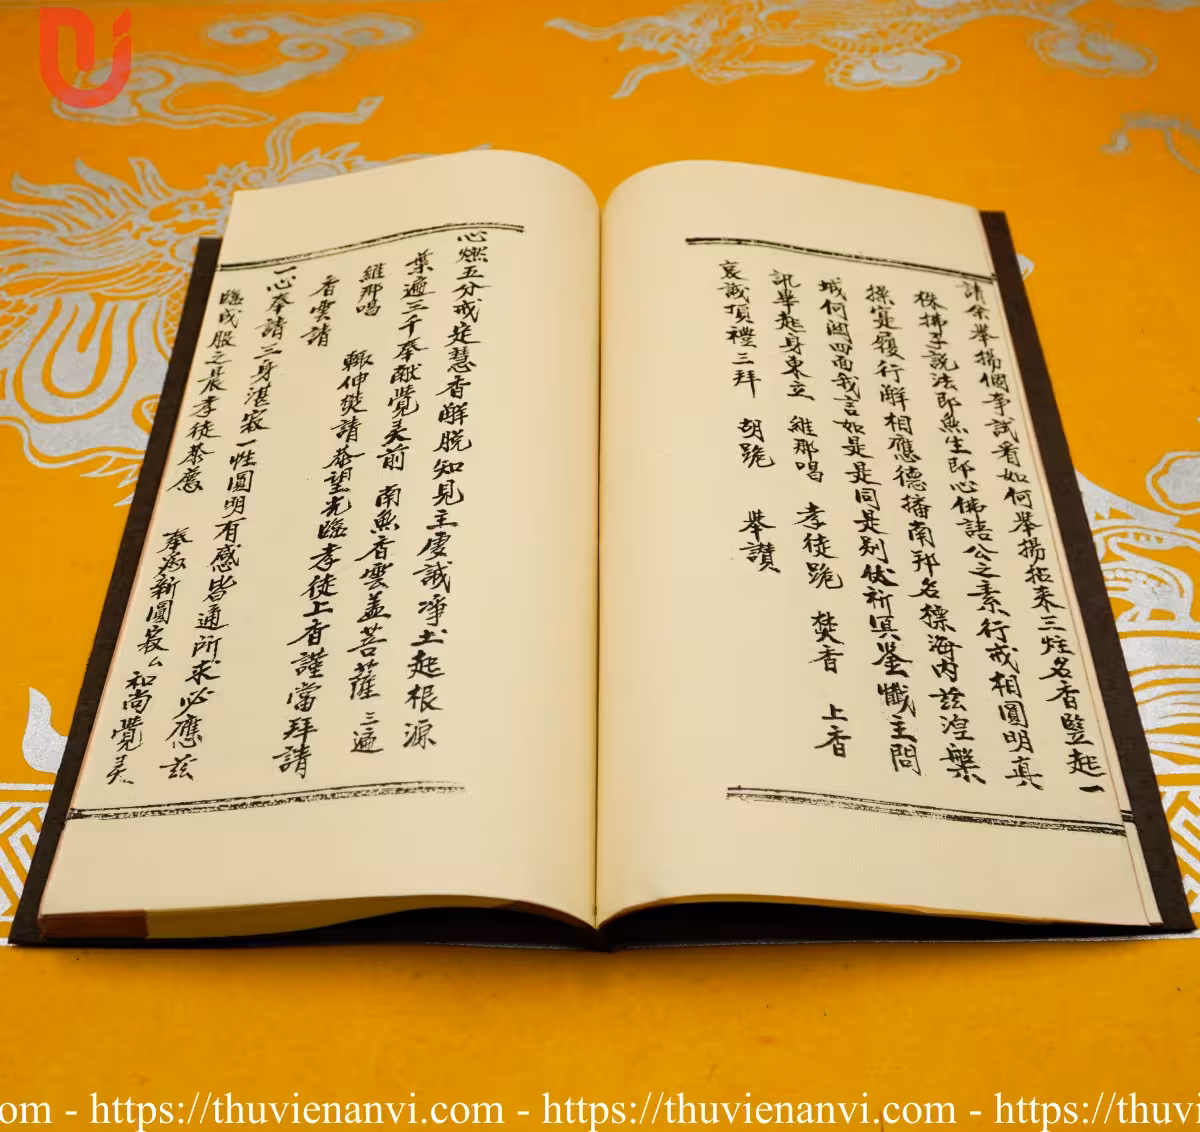 請余舉揚個事試看如何舉揚拈來三炷名香豎起一
株拂子說法即無生即心佛語公之素行戒相圓明真
操寔履行解相應德播南邦名標海內茲湼槃
城何闊四面我言如是是同是别伏祈冥鉴懺主問
訊畢起身東立 維那唱 孝徒跪 焚香 上香
哀誠頂禮三拜 胡跪 舉讚
心燃五分戒定慧香解脱知見主虔誠凈土起根源
葉遍三千奉献覺灵前 南無香雲盖菩薩 三遍
維那唱 輙伸焚請恭望光臨孝徒上香謹當拜請
香雲請
一心奉請三身湛寂一性圓明有感皆通所求必應茲
臨成服之晨孝徒恭薦 奉為新圓寂厶和尚覺灵
https://thuvienanvi.com - https://thuvienanvi.com